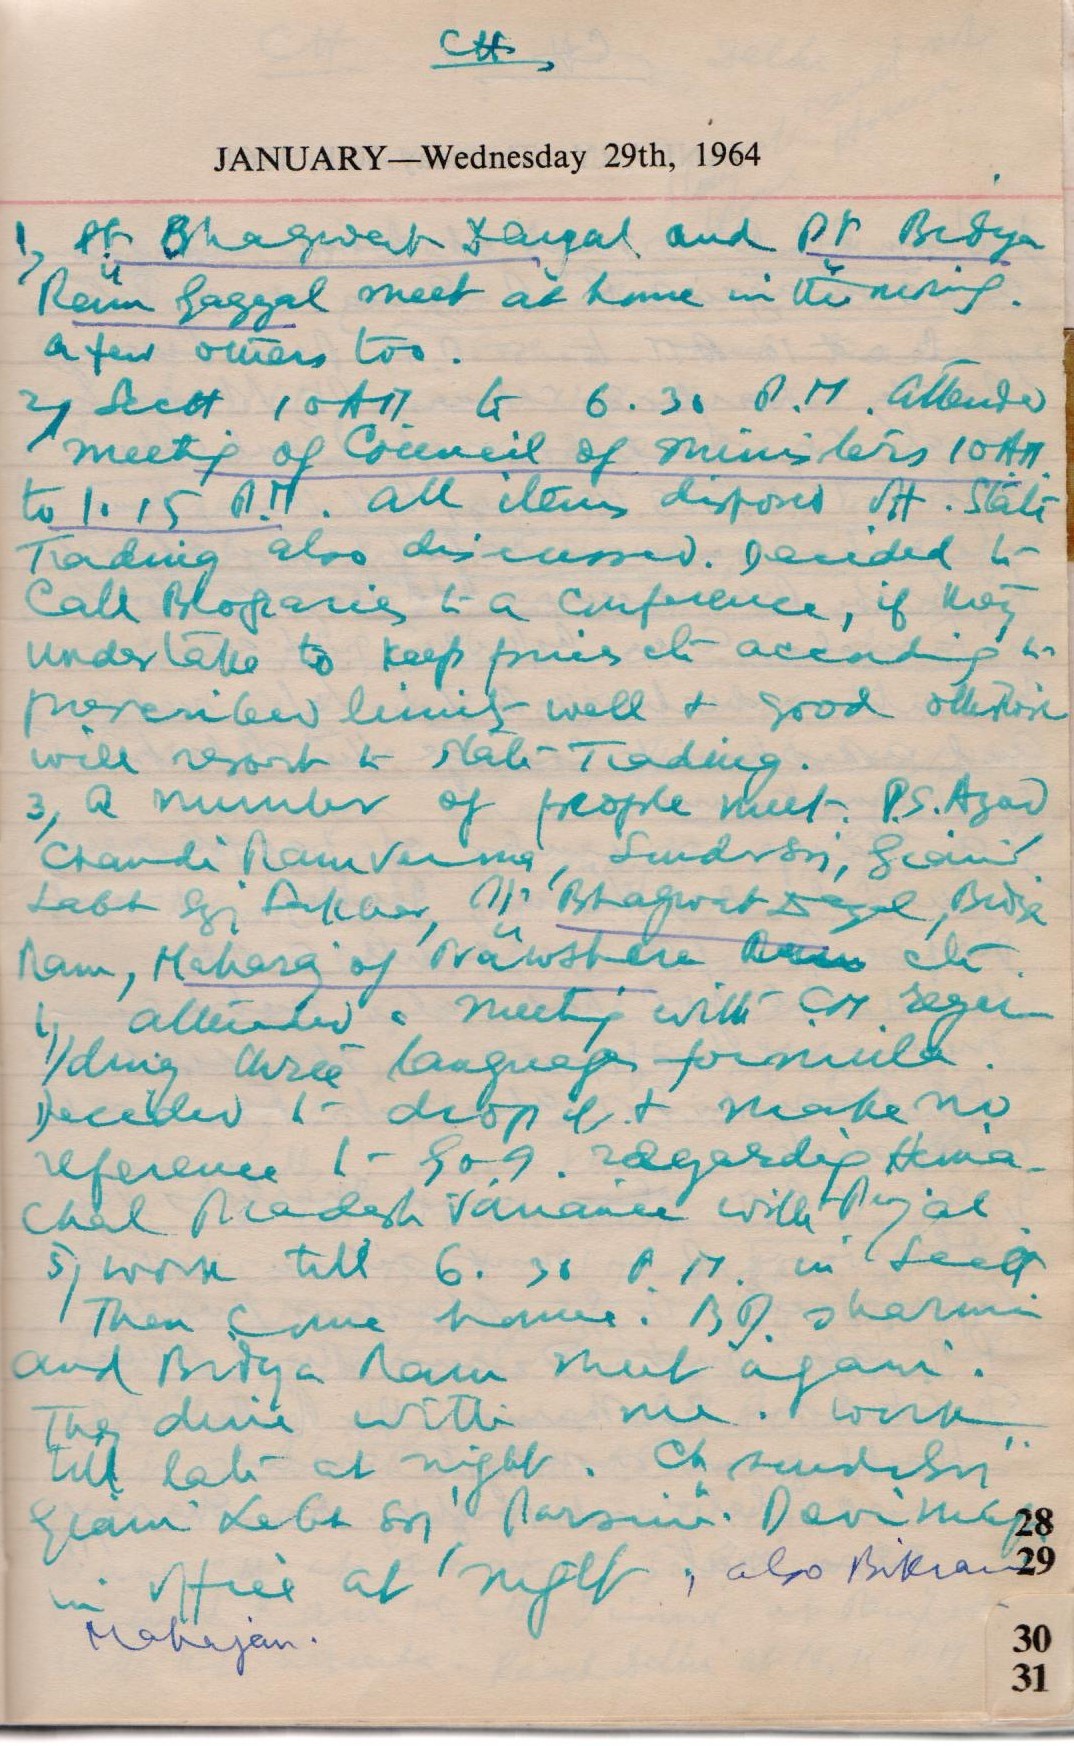 CH
JANUARY—Wednesday 29th, 1964
1, Pt Bhagwat Dayal and Pt Bidya
Ram Gaggal meet at home in the morning.
a few others too.
2, Sectt 10 AM to 6.30 P.M. Attended
meeting of Council of Ministers 10 AM
to 1.15 P.M. All items disposed off. State
Trading also discussed. Decided to
Call to a Conference, if they
undertake to keep prices etc according to
prescribed limits well & good otherwise
will resort to State Trading.
3, A number of people meet. P.S. Azad
Chandi Ram Verma, Giani
Labh Bhagwat Dayal, Bidya
Ram, Maharaj of Nawshera etc.
attended a meeting with CM regar-
ding three language formula.
Decided to drop it & make no
reference to G of I. regarding Hima-
chal Pradesh with Punjab
5, work till 6.30 P.M. in Sectt
Then come home. B.D. Sharma
and Bidya Ram meet again.
They dine with me. work
till late at night. Ch
Giani Labh Devi meet
in office at night, also Bikram
Mahajan.
28
29
30
31